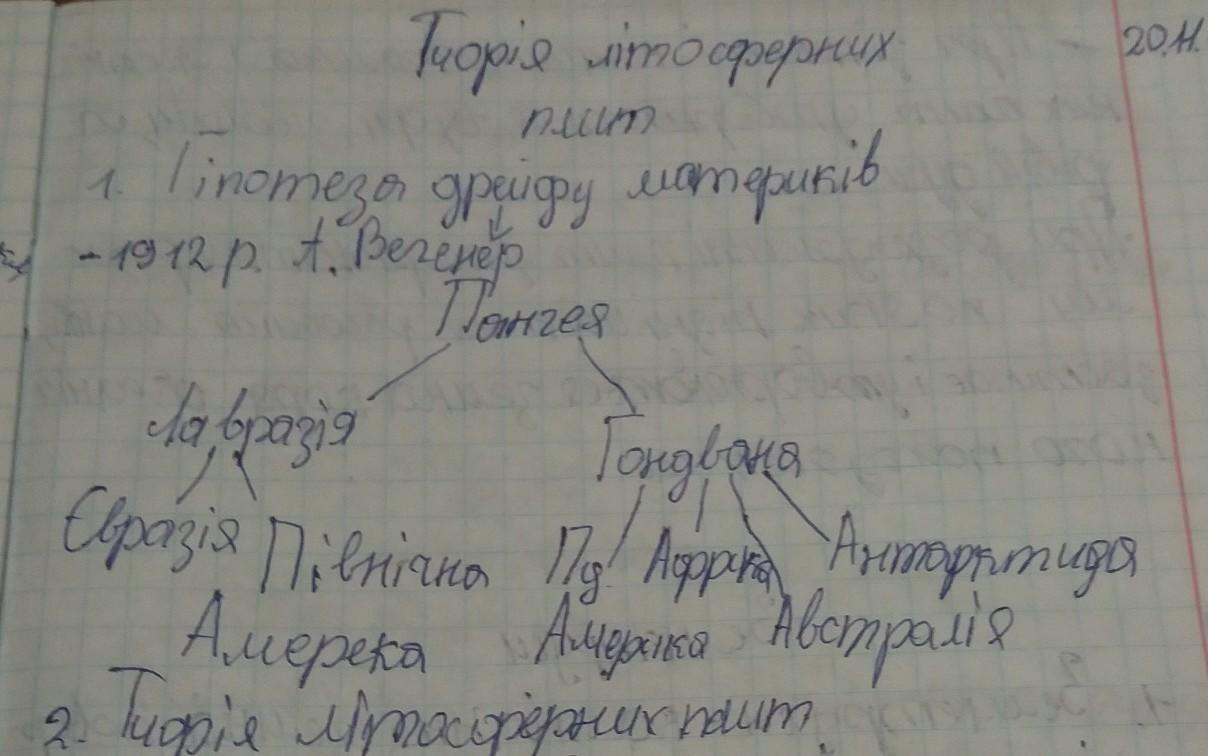 Тиорія літосферних 20.11.
плит
1. Гіпотеза дрейфу материків
- 1912 р. А. Вегенер
Пангея
Лавразія Гондвана
Євразія Північна Пд. Африка Антарктида
Амерека Америка Австралія
2. Тиорія літосферних плит